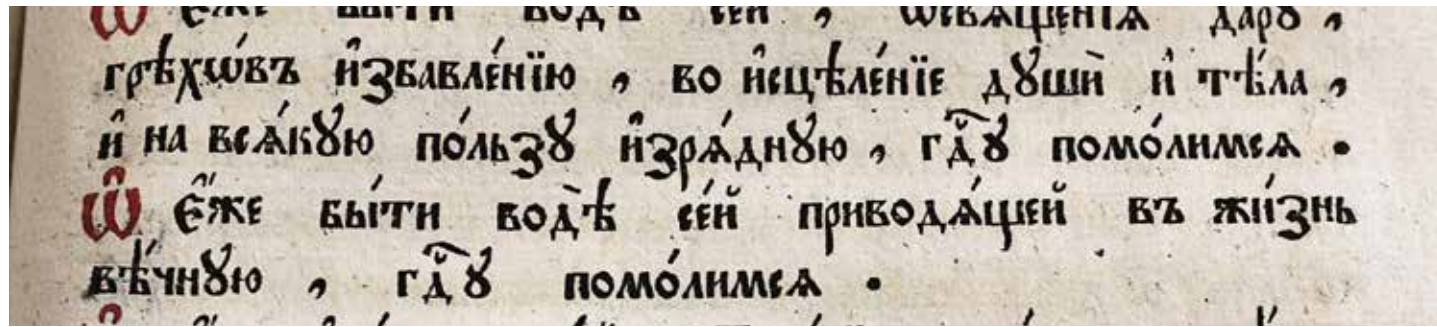 Ѡ҆ є҆́же бы́ти водѣ̀ се́й , ѡ҆свѧще́нїѧ да́рꙋ ,
грѣхѡ́въ и҆збавле́нїю , во и҆сцѣле́нїе дꙋшѝ и҆ тѣ́ла ,
и҆ на всѧ́кꙋю по́льзꙋ и҆зрѧ́днꙋю , гдⷭ҇ꙋ помо́лимсѧ .
Ѡ҆ є҆́же бы́ти водѣ̀ се́й приводѧ́щей въ жи́знь
вѣ́чнꙋю , гдⷭ҇ꙋ помо́лимсѧ .